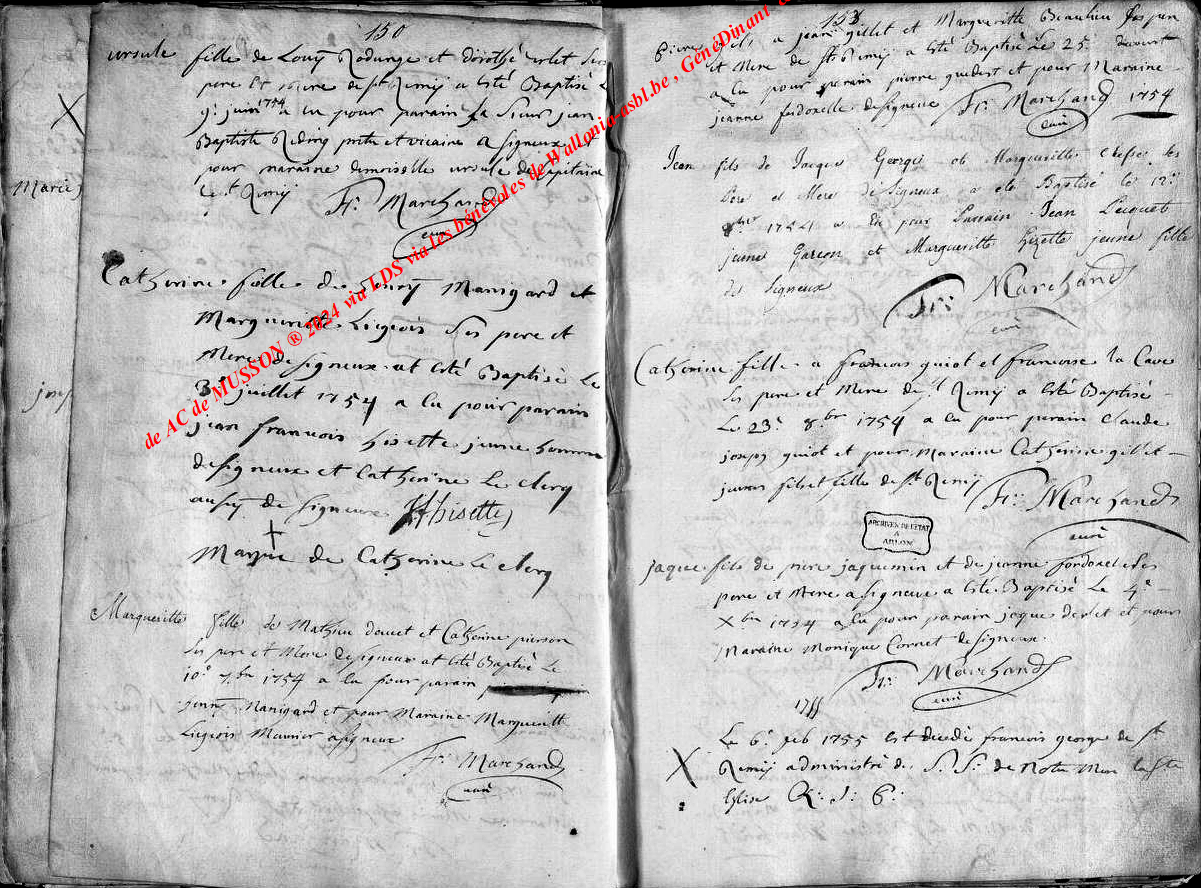 150
ursule fille de Louÿ Rodange et dorothé arlet ses
pere et mere de st Remÿ a êté Baptisé
9: juin 1754 a eu pour parain Le Sieur jean
Baptiste Reding pretre et vicaire a signeux
pour maraine demoiselle ursule de Capitaine
de st Remÿ Fr: Marchand
curé
Maries
Catherine fille de henrÿ Manigard et
Margueritte Liegeois Ses pere et
Mere de signeux at êté Baptisé Le
3e juillet 1754 a Eu pour parain
jean francois hisette jeune homme
de signeux et Catherine Le clerq
aussÿ de signeux hisette
Marque de Catherine Le clerq
Margueritte fille de Mathieu et Catherine pierson
Ses pere et Mere de signeux at êté Baptisé Le
10e 7.bre 1754 a Eu pour parain
Manigard et pour Maraine Margueritte
Liegeois Meunier a signeux
Fr: Marchand
curé
153
pierre fils a jean gillet et Margueritte Beaulieu Ses pere
et Mere de st Remÿ a êté Baptisé Le 25:
a Eu pour parain pierre et pour Maraine
jeanne fordoxelle de signeux Fr: Marchand 1754
curé
Jean fils de Jacque George et Margueritte les
Pere et Mere de Signeux a été Baptisé le 12e
1754 a Eu pour Parrain Jean Lecquet
jeune Garcon et Margueritte hizette jeune fille
de Signeux
Fr: Marchand
curé
Catherine fille a francois guiot et francoise la Cave
Ses pere et Mere de st Remÿ a êté Baptisé
Le 23e 8.br 1754 a Eu pour parain Claude
joseph guiot et pour Maraine Catherine gillet
jeunes fils et fille de st Remÿ
Fr: Marchand
curé
ARCHIVES DE L'ETAT
A
ARLON
jaque fils de piere jaquemin et de jeanne fordoxel Ses
pere et Mere a signeux a êté Baptisé Le 4e
Xbre 1754 a Eu pour parain jaque et pour
Maraine Monique Cornet de signeux
Fr: Marchand
curé
1755
Le 6e feb 1755 est decedé francois george de st
Remÿ administré de S. S: de Notre Mere la Ste
Eglise R: J: P:
de AC de MUSSON ® 2024 via LDS via les bénévoles de Wallonia-asbl.be , GénéDinant